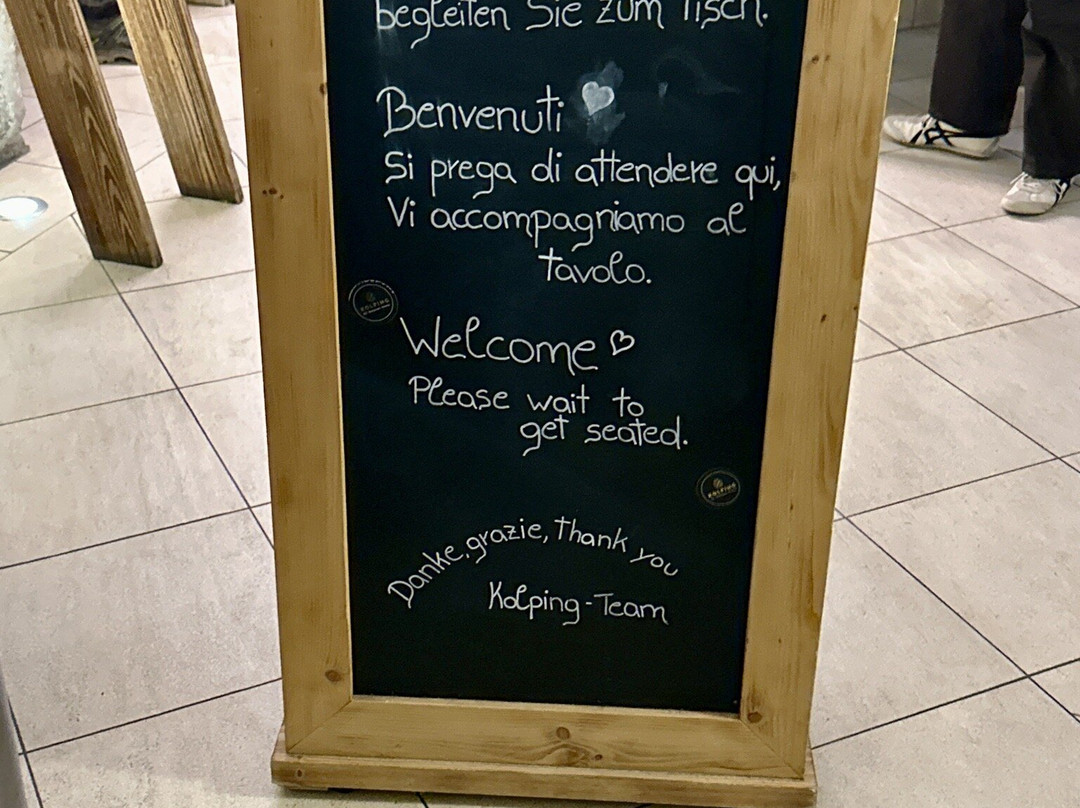 begleiten Sie zum Tisch.
Benvenuti
Si prega di attendere qui,
Vi accompagniamo al
tavolo.
KOLPING
Welcome
Please wait to
get seated.
KOLPING
Danke, grazie, Thank you
Kolping-Team